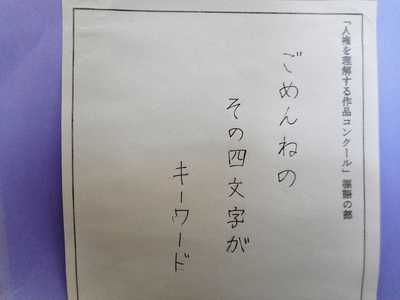 「人権を理解する作品コンクール」標語の部
ごめんねの
その四文字が
キーワード